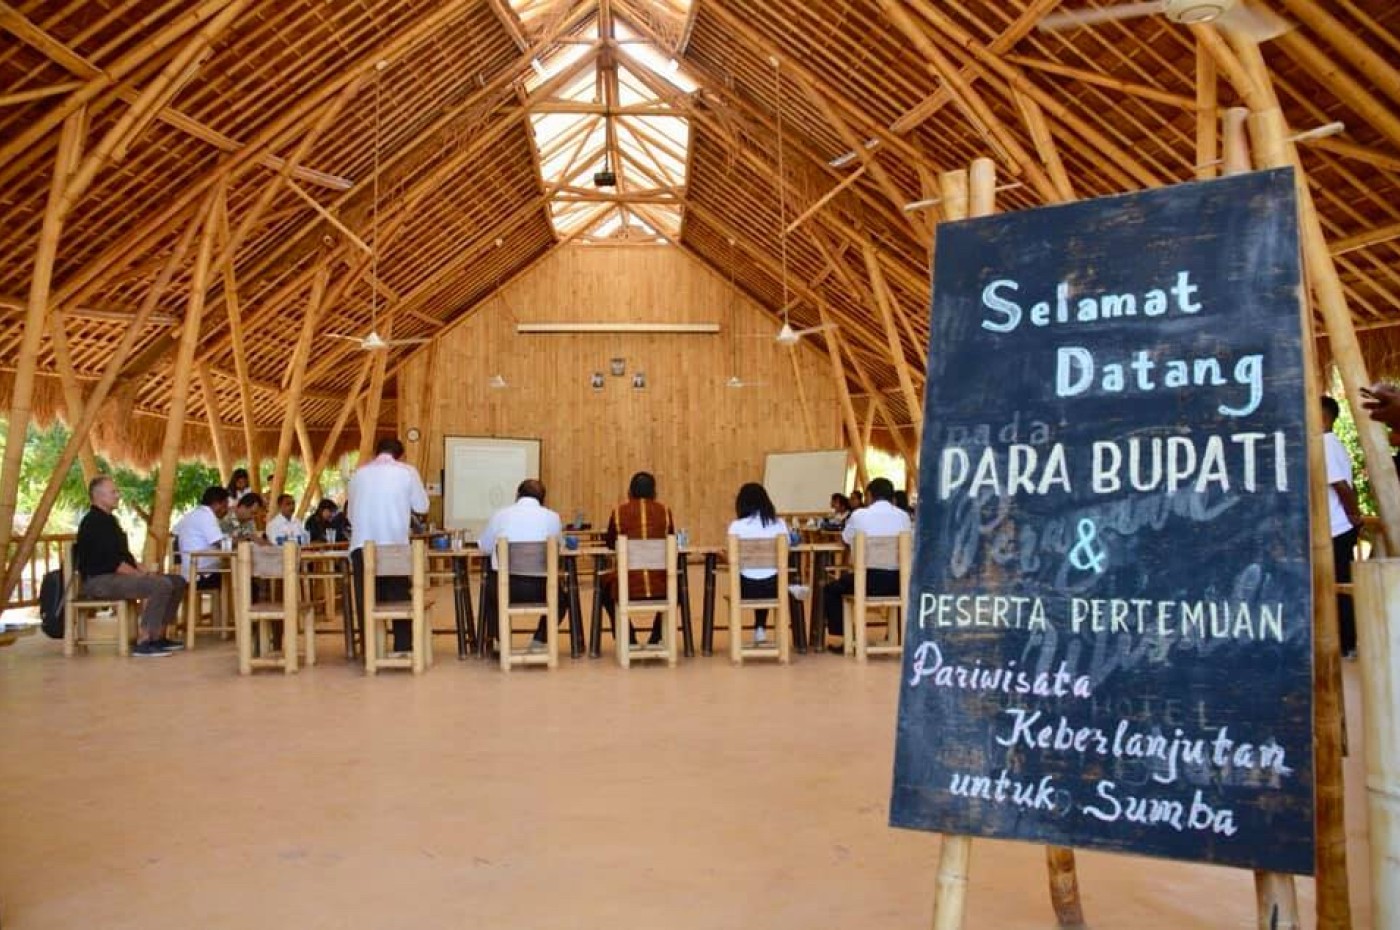 Selamat
Datang
pada
PARA BUPATI
&
PESERTA PERTEMUAN
Pariwisata
HOTEL
Keberlanjutan
untuk Sumba